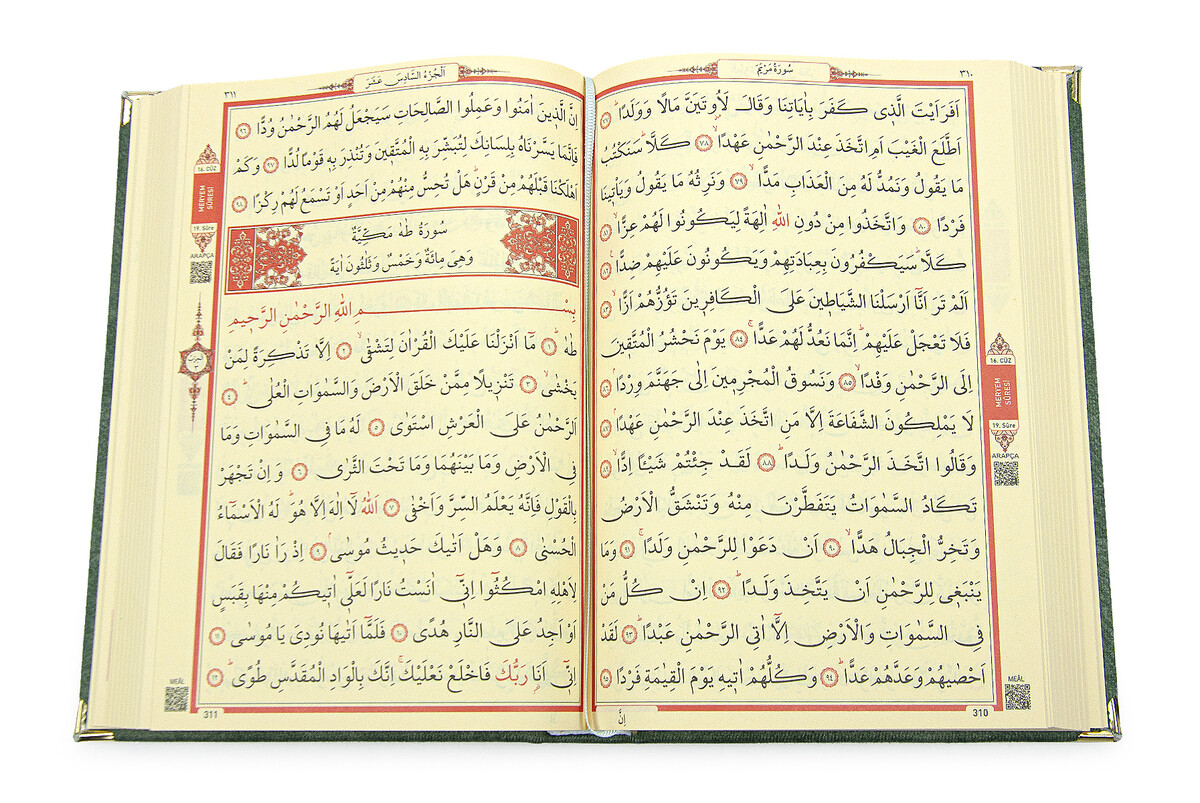 سُورَةُ مَرْيَمَ
٣١٠
اَفَرَاَيْتَ الَّذٖى كَفَرَ بِاٰيَاتِنَا وَقَالَ لَاُوتَيَنَّ مَالًا وَوَلَدًا ﴿٧٧﴾
اَطَّلَعَ الْغَيْبَ اَمِ اتَّخَذَ عِنْدَ الرَّحْمٰنِ عَهْدًا ﴿٧٨﴾ كَلَّا سَنَكْتُبُ
مَا يَقُولُ وَنَمُدُّ لَهُ مِنَ الْعَذَابِ مَدًّا ﴿٧٩﴾ وَنَرِثُهُ مَا يَقُولُ وَيَأْتٖينَا
فَرْدًا ﴿٨٠﴾ وَاتَّخَذُوا مِنْ دُونِ اللّٰهِ اٰلِهَةً لِيَكُونُوا لَهُمْ عِزًّا ﴿٨١﴾
كَلَّا سَيَكْفُرُونَ بِعِبَادَتِهِمْ وَيَكُونُونَ عَلَيْهِمْ ضِدًّا ﴿٨٢﴾
اَلَمْ تَرَ اَنَّا اَرْسَلْنَا الشَّيَاطٖينَ عَلَى الْكَافِرٖينَ تَؤُزُّهُمْ اَزًّا ﴿٨٣﴾
فَلَا تَعْجَلْ عَلَيْهِمْ اِنَّمَا نَعُدُّ لَهُمْ عَدًّا ﴿٨٤﴾ يَوْمَ نَحْشُرُ الْمُتَّقٖينَ
اِلَى الرَّحْمٰنِ وَفْدًا ﴿٨٥﴾ وَنَسُوقُ الْمُجْرِمٖينَ اِلٰى جَهَنَّمَ وِرْدًا ﴿٨٦﴾
لَا يَمْلِكُونَ الشَّفَاعَةَ اِلَّا مَنِ اتَّخَذَ عِنْدَ الرَّحْمٰنِ عَهْدًا ﴿٨٧﴾
وَقَالُوا اتَّخَذَ الرَّحْمٰنُ وَلَدًا ﴿٨٨﴾ لَقَدْ جِئْتُمْ شَيْئًا اِدًّا ﴿٨٩﴾
تَكَادُ السَّمٰوَاتُ يَتَفَطَّرْنَ مِنْهُ وَتَنْشَقُّ الْاَرْضُ
وَتَخِرُّ الْجِبَالُ هَدًّا ﴿٩٠﴾ اَنْ دَعَوْا لِلرَّحْمٰنِ وَلَدًا ﴿٩١﴾ وَمَا
يَنْبَغٖى لِلرَّحْمٰنِ اَنْ يَتَّخِذَ وَلَدًا ﴿٩٢﴾ اِنْ كُلُّ مَنْ
فِى السَّمٰوَاتِ وَالْاَرْضِ اِلَّا اٰتِى الرَّحْمٰنِ عَبْدًا ﴿٩٣﴾ لَقَدْ
اَحْصٰيهُمْ وَعَدَّهُمْ عَدًّا ﴿٩٤﴾ وَكُلُّهُمْ اٰتٖيهِ يَوْمَ الْقِيٰمَةِ فَرْدًا ﴿٩٥﴾
اِنَّ
310
16. CÜZ
MERYEM
SÛRESİ
19. Sûre
ARAPÇA
MEÂL
اَلْجُزْءُ السَّادِسَ عَشَرَ
٣١١
اِنَّ الَّذٖينَ اٰمَنُوا وَعَمِلُوا الصَّالِحَاتِ سَيَجْعَلُ لَهُمُ الرَّحْمٰنُ وُدًّا ﴿٩٦﴾
فَاِنَّمَا يَسَّرْنَاهُ بِلِسَانِكَ لِتُبَشِّرَ بِهِ الْمُتَّقٖينَ وَتُنْذِرَ بِهٖ قَوْمًا لُدًّا ﴿٩٧﴾ وَكَمْ
اَهْلَكْنَا قَبْلَهُمْ مِنْ قَرْنٍ هَلْ تُحِسُّ مِنْهُمْ مِنْ اَحَدٍ اَوْ تَسْمَعُ لَهُمْ رِكْزًا ﴿٩٨﴾
سُورَةُ طٰهٰ مَكِّيَّةٌ
وَهِىَ مِائَةٌ وَخَمْسٌ وَثَلٰثُونَ اٰيَةً
بِسْمِ اللّٰهِ الرَّحْمٰنِ الرَّحٖيمِ
طٰهٰ ﴿١﴾ مَا اَنْزَلْنَا عَلَيْكَ الْقُرْاٰنَ لِتَشْقٰى ﴿٢﴾ اِلَّا تَذْكِرَةً لِمَنْ
يَخْشٰى ﴿٣﴾ تَنْزٖيلًا مِمَّنْ خَلَقَ الْاَرْضَ وَالسَّمٰوَاتِ الْعُلٰى ﴿٤﴾
اَلرَّحْمٰنُ عَلَى الْعَرْشِ اسْتَوٰى ﴿٥﴾ لَهُ مَا فِى السَّمٰوَاتِ وَمَا
فِى الْاَرْضِ وَمَا بَيْنَهُمَا وَمَا تَحْتَ الثَّرٰى ﴿٦﴾ وَاِنْ تَجْهَرْ
بِالْقَوْلِ فَاِنَّهُ يَعْلَمُ السِّرَّ وَاَخْفٰى ﴿٧﴾ اَللّٰهُ لَا اِلٰهَ اِلَّا هُوَ لَهُ الْاَسْمَاءُ
الْحُسْنٰى ﴿٨﴾ وَهَلْ اَتٰيكَ حَدٖيثُ مُوسٰى ﴿٩﴾ اِذْ رَاٰ نَارًا فَقَالَ
لِاَهْلِهِ امْكُثُوا اِنّٖى اٰنَسْتُ نَارًا لَعَلّٖى اٰتٖيكُمْ مِنْهَا بِقَبَسٍ
اَوْ اَجِدُ عَلَى النَّارِ هُدًى ﴿١٠﴾ فَلَمَّا اَتٰيهَا نُودِىَ يَا مُوسٰى ﴿١١﴾
اِنّٖى اَنَا رَبُّكَ فَاخْلَعْ نَعْلَيْكَ اِنَّكَ بِالْوَادِ الْمُقَدَّسِ طُوًى ﴿١٢﴾
311
16. CÜZ
MERYEM
SÛRESİ
19. Sûre
ARAPÇA
MEÂL